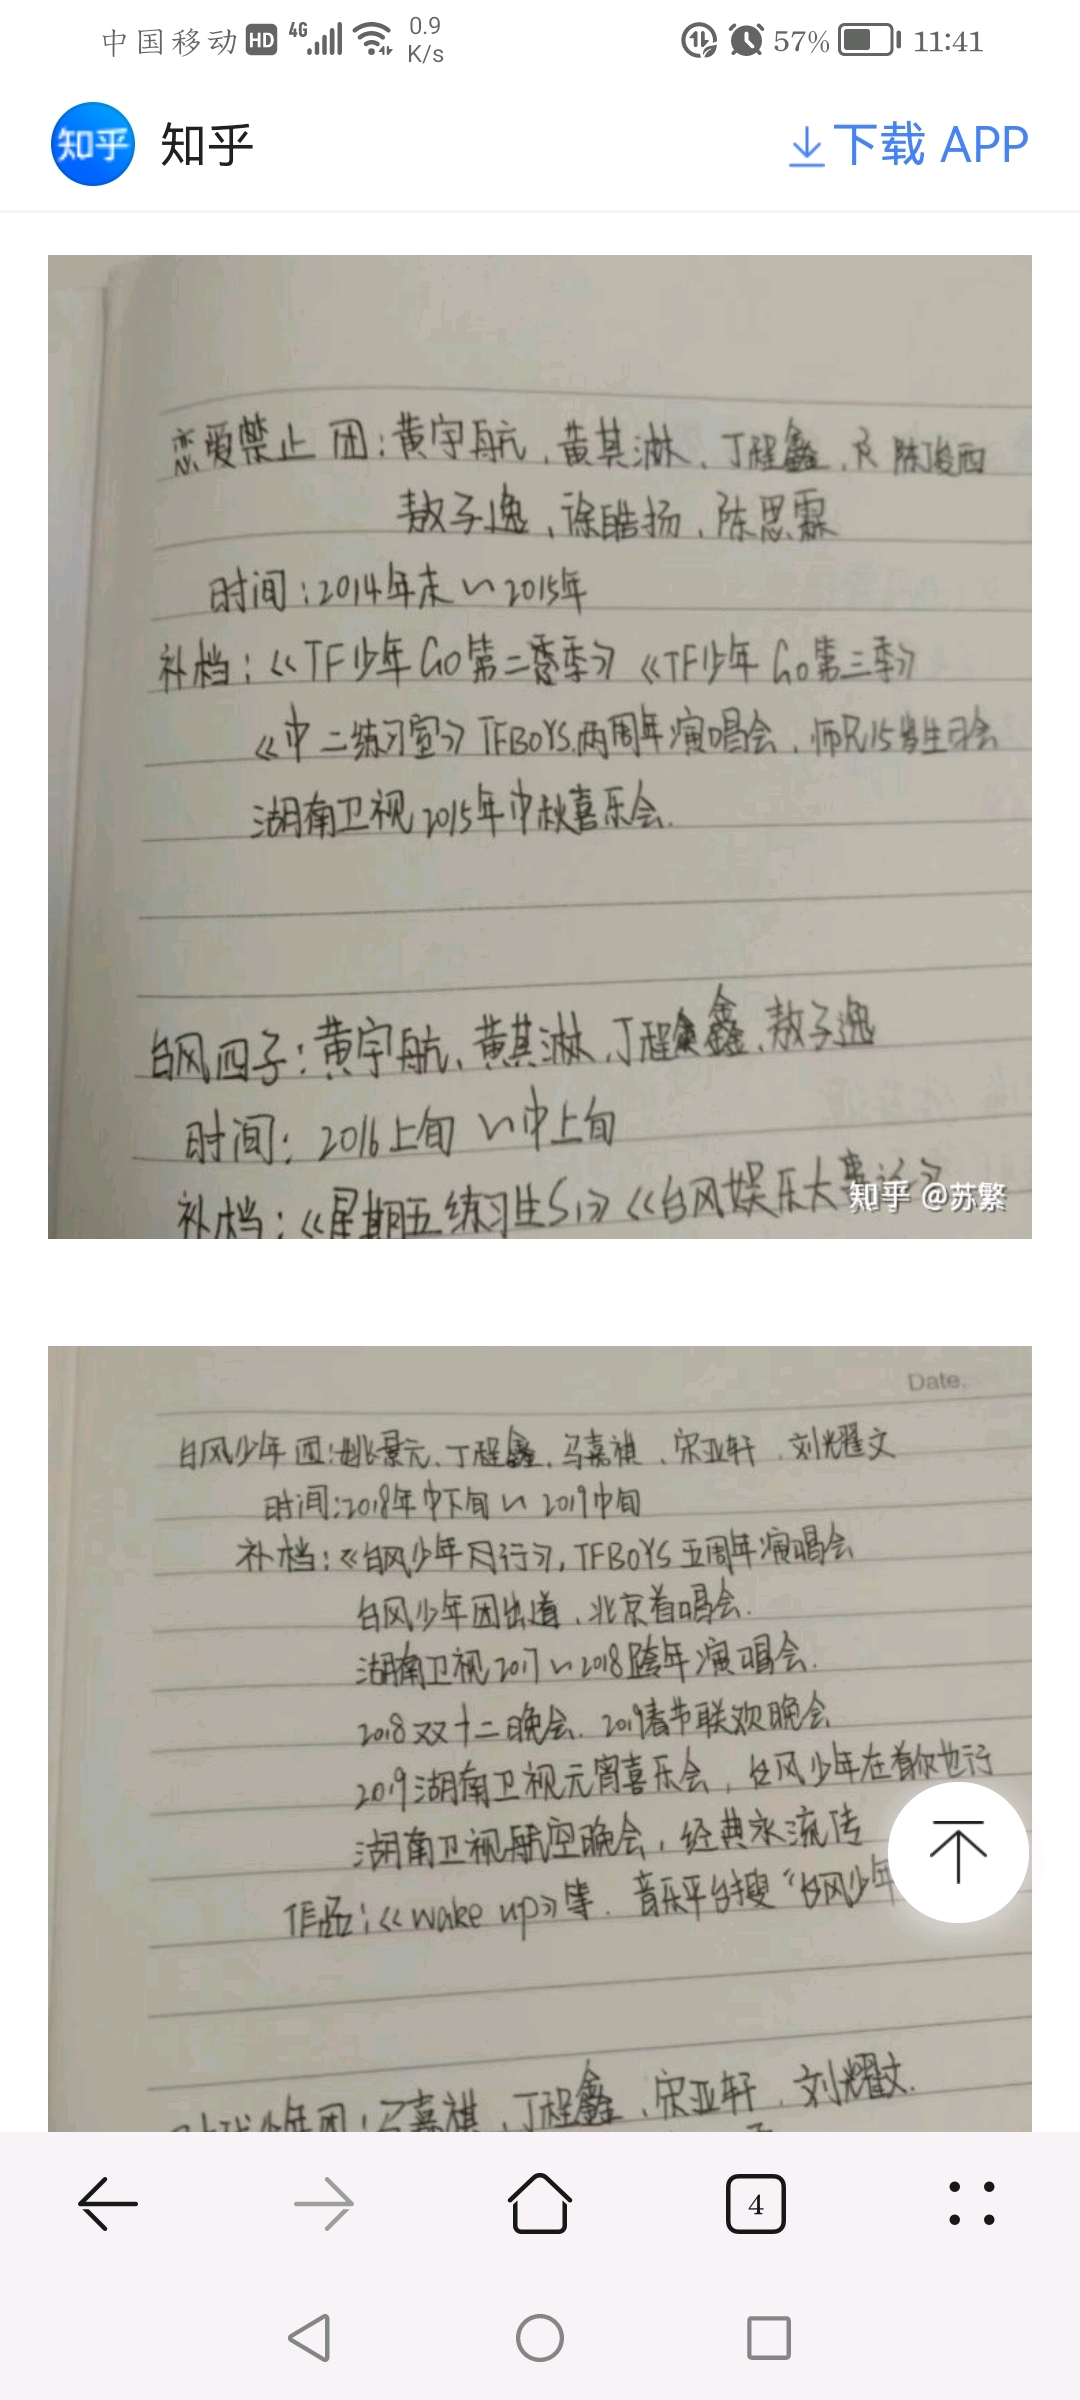 中国移动 HD 4G 0.9 K/s 57% 11:41
知乎 知乎 下载 APP
恋爱禁止团:黄宇航、黄其淋、丁程鑫、陈泯西
敖子逸、徐皓扬、陈思霖
时间:2014年末~2015年
补档:《TF少年Go第二季》《TF少年Go第三季》
《中二练习室》TFBOYS两周年演唱会、师兄15岁生日会
湖南卫视2015年中秋喜乐会.
台风四子:黄宇航、黄其淋、丁程鑫、敖子逸
时间:2016上旬~中上旬
补档:《星期五练习生S1》《台风娱乐大事
知乎 @苏繁
Date.
台风少年团:姚景元、丁程鑫、马嘉祺、宋亚轩、刘耀文
时间:2018年中下旬~2019中旬
补档:《台风少年风行》, TFBOYS五周年演唱会
台风少年团出道、北京首唱会.
湖南卫视2017~2018跨年演唱会.
2018双十二晚会. 2019春节联欢晚会
2019湖南卫视元宵喜乐会, 台风少年在看你也行
湖南卫视航空晚会, 经典永流传
作品:《wake up》等. 音乐平台搜“台风少年
少年团:马嘉祺、丁程鑫、宋亚轩、刘耀文.
4